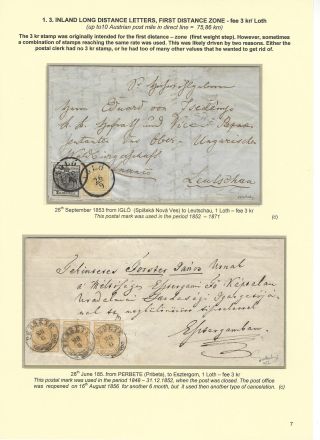 1. 3. INLAND LONG DISTANCE LETTERS, FIRST DISTANCE ZONE - fee 3 kr/ Loth
(up to10 Austrian post mile in direct line = 75,86 km)
The 3 kr stamp was originally intended for the first distance – zone (first weight step). However, sometimes
a combination of stamps reaching the same rate was used. This was likely driven by two reasons. Either the
postal clerk had no 3 kr stamp, or he had too many other values that he wanted to get rid of.
Eduard von
IGLÓ
26/9
und
Ober - Ungarische
Leutschau
26th September 1853 from IGLÓ (Spišská Nová Ves) to Leutschau, 1 Loth – fee 3 kr
This postal mark was used in the period 1852 – 1871
(c)
Tekintetes Forster János Urnak
a Méltóságos Esztergomi Fő Káptalan
Esztergamban
28th June 185. from PERBETE (Pribeta), to Esztergom, 1 Loth – fee 3 kr
This postal mark was used in the period 1849 – 31.12.1852, when the post was closed. The post office
was reopened on 16th August 1856, for another 6 month, but it used then another type of cancellation.
(c)
7